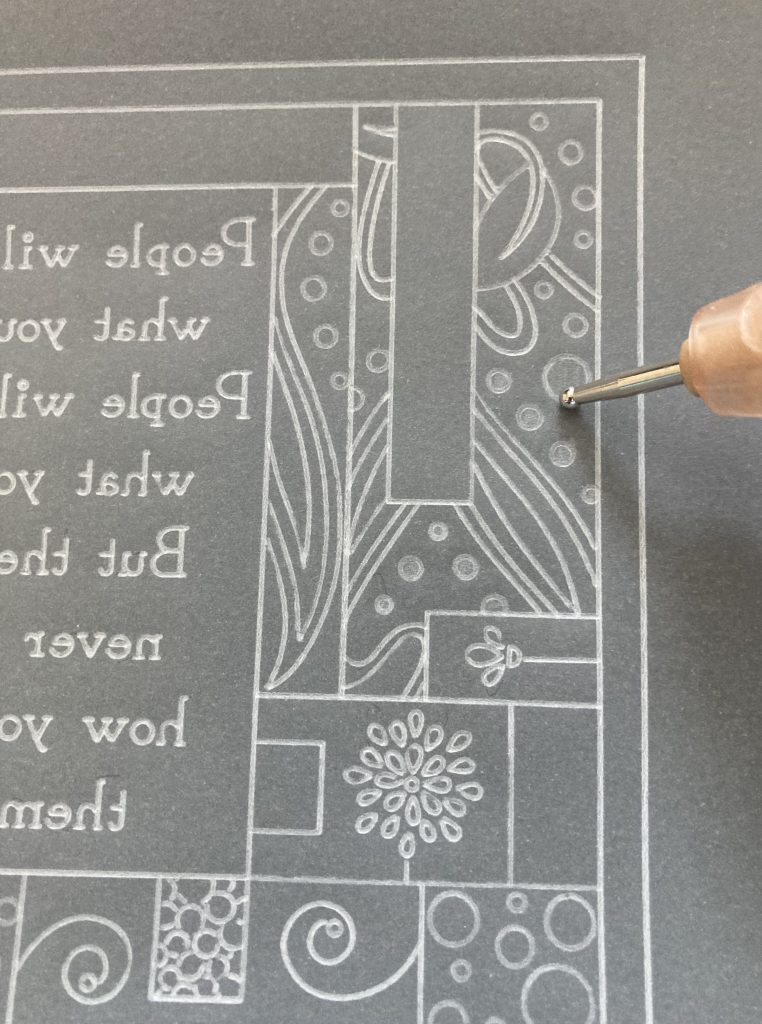 People wil
what you
People wil
what yo
But the
never
how yo
them